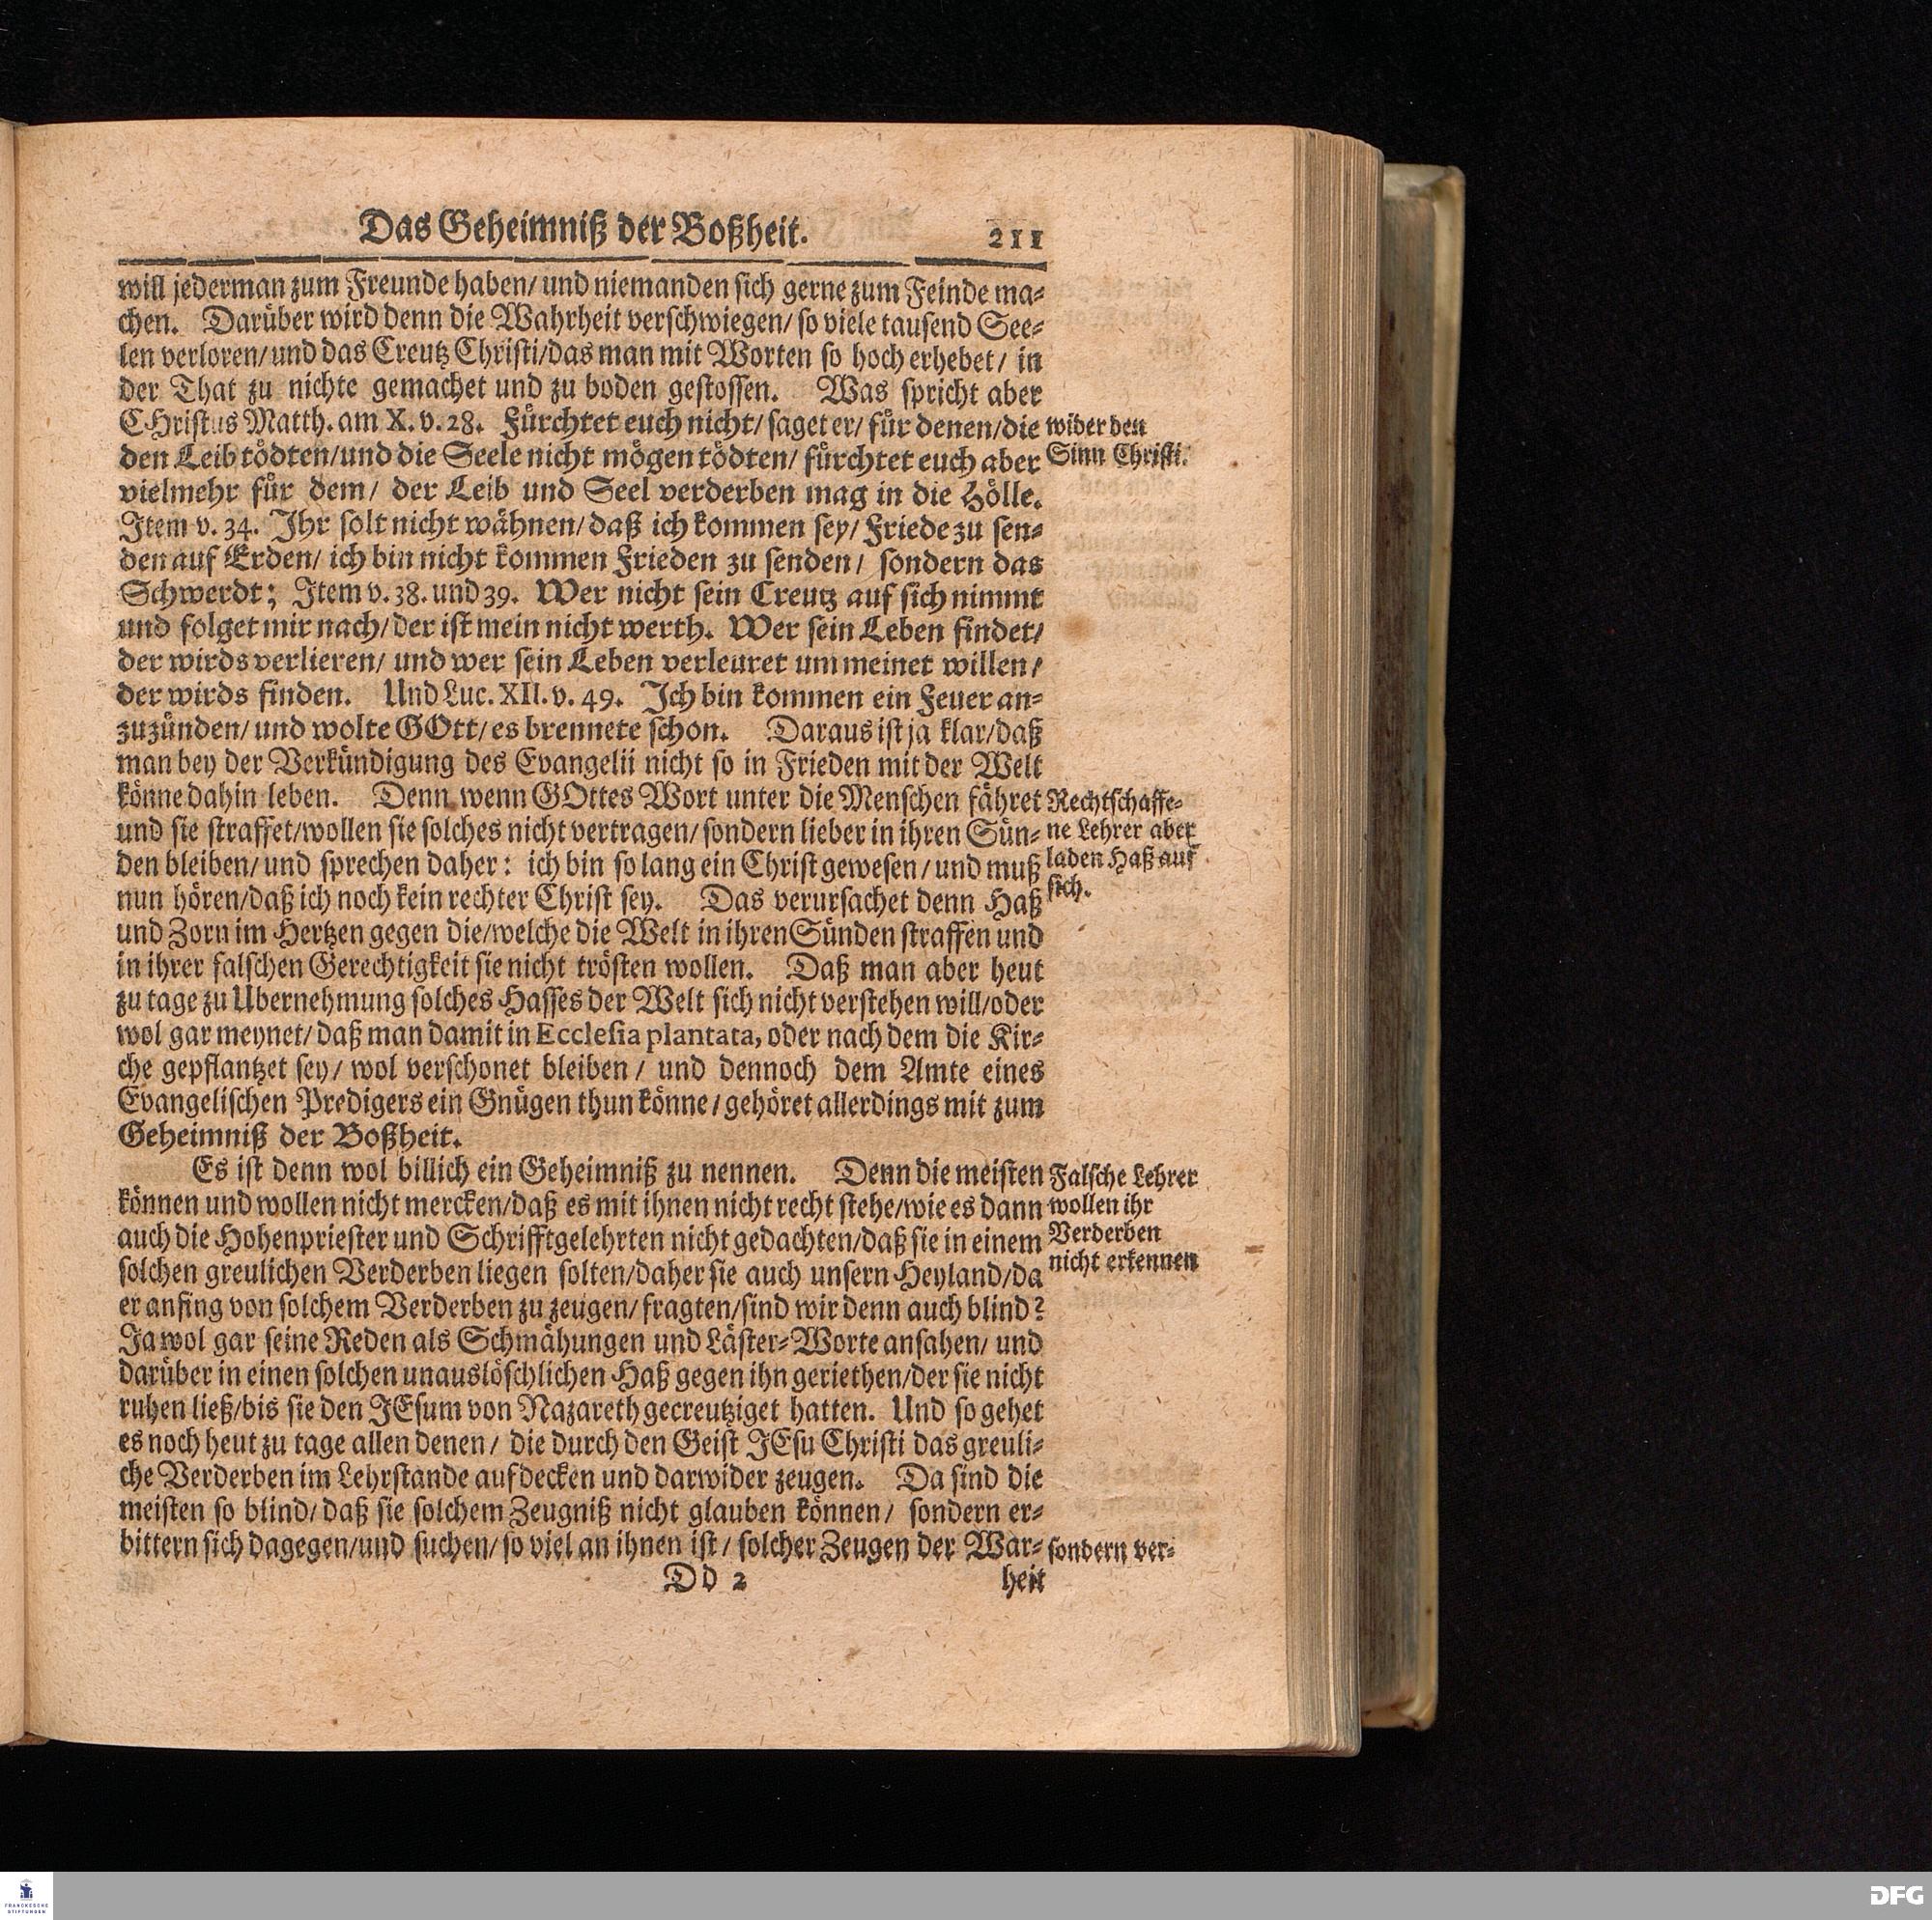 Das Geheimniß der Boßheit. 211
will jederman zum Freunde haben/ und niemanden sich gerne zum Feinde ma-
chen. Darüber wird denn die Wahrheit verschwiegen/ so viele tausend See-
len verloren/ und das Creutz Christi/ das man mit Worten so hoch erhebet/ in
der That zu nichte gemachet und zu boden gestossen. Was spricht aber
CHristus Matth. am X. v. 28. Fürchtet euch nicht/ saget er/ für denen/ die
den Leib tödten/ und die Seele nicht mögen tödten/ fürchtet euch aber
vielmehr für dem/ der Leib und Seel verderben mag in die Hölle.
Item v. 34. Ihr solt nicht wähnen/ daß ich kommen sey/ Friede zu sen-
den auf Erden/ ich bin nicht kommen Frieden zu senden/ sondern das
Schwerdt; Item v. 38. und 39. Wer nicht sein Creutz auf sich nimmt
und folget mir nach/ der ist mein nicht werth. Wer sein Leben findet/
der wirds verlieren/ und wer sein Leben verleuret um meinet willen/
der wirds finden. Und Luc. XII. v. 49. Ich bin kommen ein Feuer an-
zuzünden/ und wolte GOtt/ es brennete schon. Daraus ist ja klar/ daß
man bey der Verkündigung des Evangelii nicht so in Frieden mit der Welt
könne dahin leben. Denn wenn GOttes Wort unter die Menschen fähret
und sie straffet/ wollen sie solches nicht vertragen/ sondern lieber in ihren Sün-
den bleiben/ und sprechen daher: ich bin so lang ein Christ gewesen/ und muß
nun hören/ daß ich noch kein rechter Christ sey. Das verursachet denn Haß
und Zorn im Hertzen gegen die/ welche die Welt in ihren Sünden straffen und
in ihrer falschen Gerechtigkeit sie nicht trösten wollen. Daß man aber heut
zu tage zu Ubernehmung solches Hasses der Welt sich nicht verstehen will/ oder
wol gar meynet/ daß man damit in Ecclesia plantata, oder nach dem die Kir-
che gepflantzet sey/ wol verschonet bleiben/ und dennoch dem Amte eines
Evangelischen Predigers ein Gnügen thun könne/ gehöret allerdings mit zum
Geheimniß der Boßheit.
Es ist denn wol billich ein Geheimniß zu nennen. Denn die meisten
können und wollen nicht mercken/ daß es mit ihnen nicht recht stehe/ wie es dann
auch die Hohenpriester und Schrifftgelehrten nicht gedachten/ daß sie in einem
solchen greulichen Verderben liegen solten/ daher sie auch unsern Heyland/ da
er anfing von solchem Verderben zu zeugen/ fragten/ sind wir denn auch blind?
Ja wol gar seine Reden als Schmähungen und Läster-Worte ansahen/ und
darüber in einen solchen unauslöschlichen Haß gegen ihn geriethen/ der sie nicht
ruhen ließ/ bis sie den JEsum von Nazareth gecreutziget hatten. Und so gehet
es noch heut zu tage allen denen/ die durch den Geist JEsu Christi das greuli-
che Verderben im Lehrstande aufdecken und darwider zeugen. Da sind die
meisten so blind/ daß sie solchem Zeugniß nicht glauben können/ sondern er-
bittern sich dagegen/ und suchen/ so viel an ihnen ist/ solcher Zeugen der War-
Dd 2 heit
wider den
Sinn Christi.
Rechtschaffe-
ne Lehrer aber
laden Haß auf
sich.
Falsche Lehrer
wollen ihr
Verderben
nicht erkennen
sondern ver-
FRANCKESCHE
STIFTUNGEN
DFG